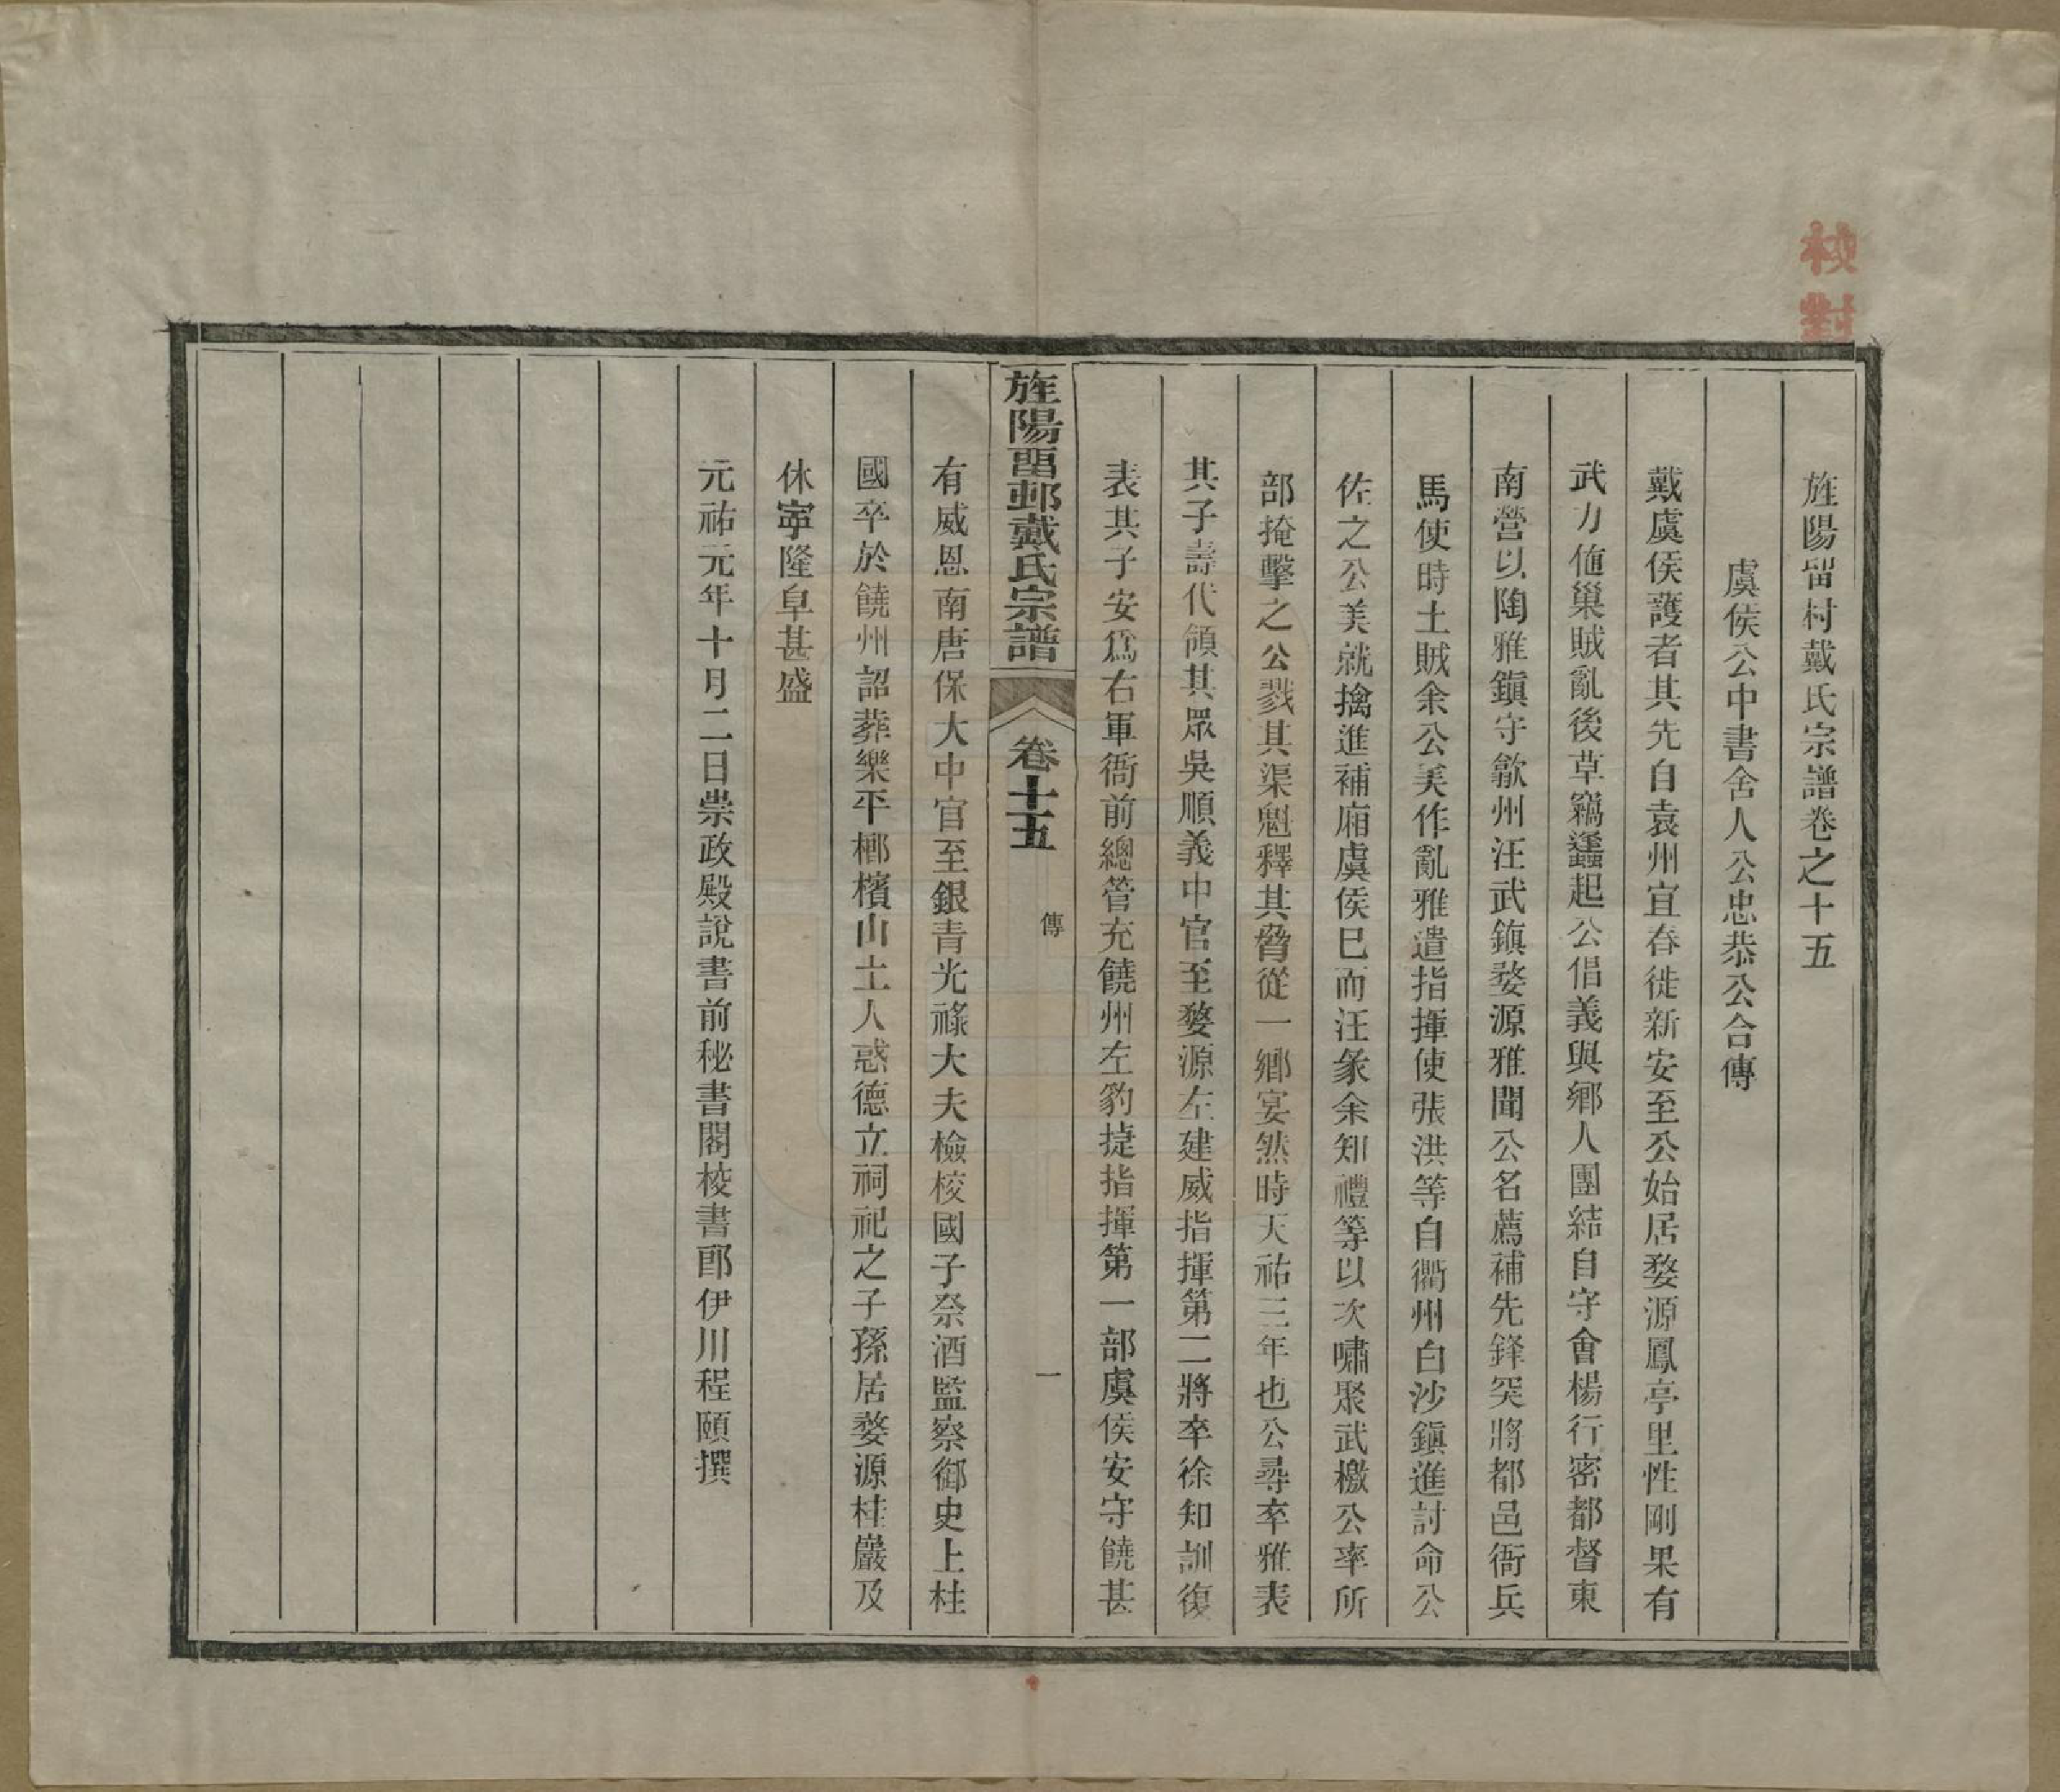 校對
旌陽留村戴氏宗譜卷之十五
虞侯公中書舍人公忠恭公合傳
戴虞侯護者其先自袁州宜春徙新安至公始居婺源鳳亭里性剛果有
武力値巢賊亂後草竊蠭起公倡義與鄉人團結自守會楊行密都督東
南營以陶雅鎭守歙州汪武鎮婺源雅聞公名薦補先鋒突將都邑衙兵
馬使時土賊余公美作亂雅遣指揮使張洪等自衢州白沙鎭進討命公
佐之公美就擒進補廂虞侯巳而汪彖余知禮等以次嘯聚武檄公率所
部掩擊之公戮其渠魁釋其脅從一鄉宴然時天祐三年也公尋卒雅表
其子壽代領其眾吳順義中官至婺源左建威指揮第二將卒徐知訓復
表其子安爲右軍衙前總管充饒州左豹捷指揮第一部虞侯安守饒甚
旌陽畱邨戴氏宗譜 卷十五 傳 一
有威恩南唐保大中官至銀青光祿大夫檢校國子祭酒監察御史上柱
國卒於饒州詔葬樂平槨檳山土人惑德立祠祀之子孫居婺源桂巖及
休寧隆阜甚盛
元祐元年十月二日崇政殿說書前秘書閣校書郎伊川程頤撰